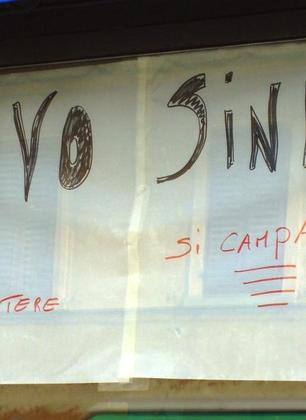 VO SIN
SI CAMPA
TERE